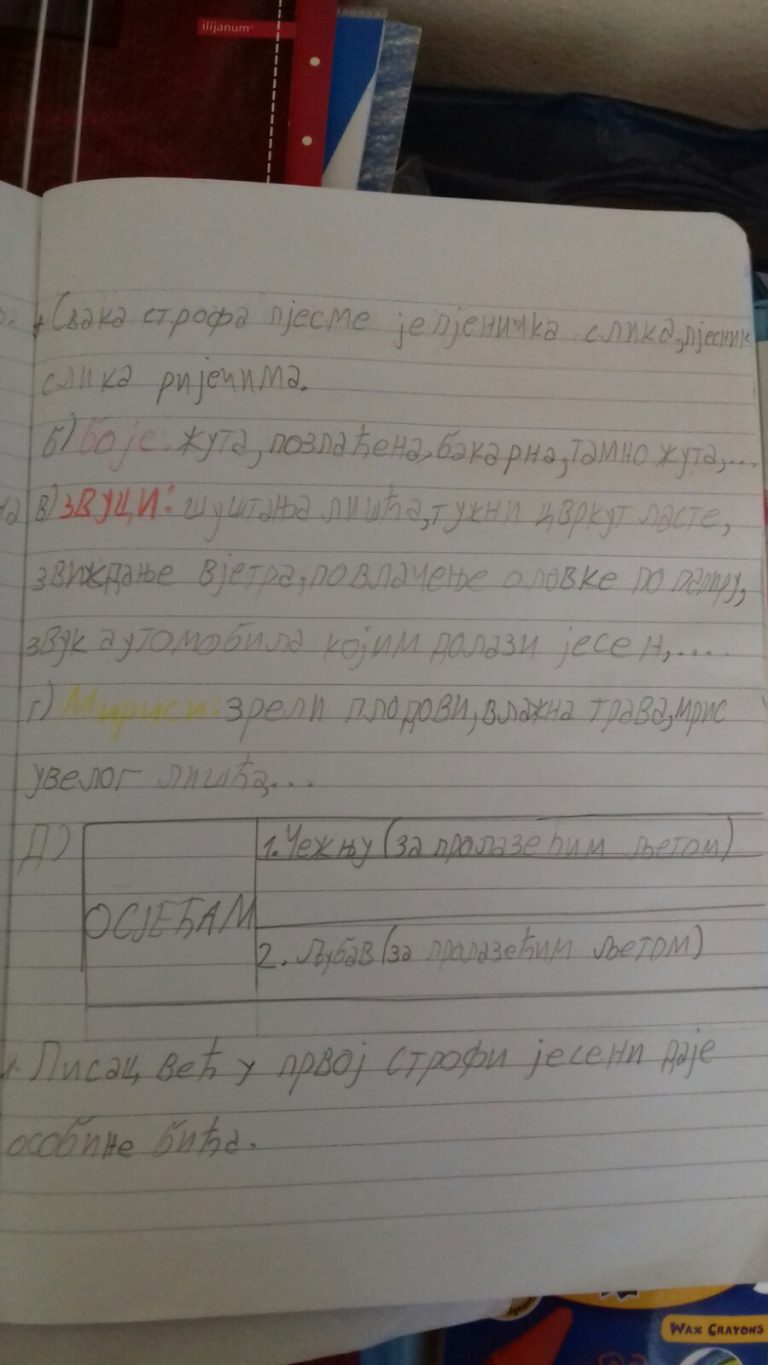 ilijanum
+ Свака строфа пјесме је пјеничка слика, пјесник
слика ријечима.
б) Боје: жута, позлаћена, бакарна, тамно жута,...
в) ЗВУЦИ: шуштања лишћа, тужни цвркут ласте,
звиждање вјетра, повлачење оловке по папиру,
звук аутомобила којим долази јесен,....
г) Мириси: зрели плодови, влажна трава, мрис
увелог лишћа,...
Д)
ОСЈЕЋАМ
1. Чежњу (за пролазећим љетом)
2. Љубав (за пролазећим љетом)
Писац већ у првој строфи јесени даје
особине бића.
WAX CRAYONS